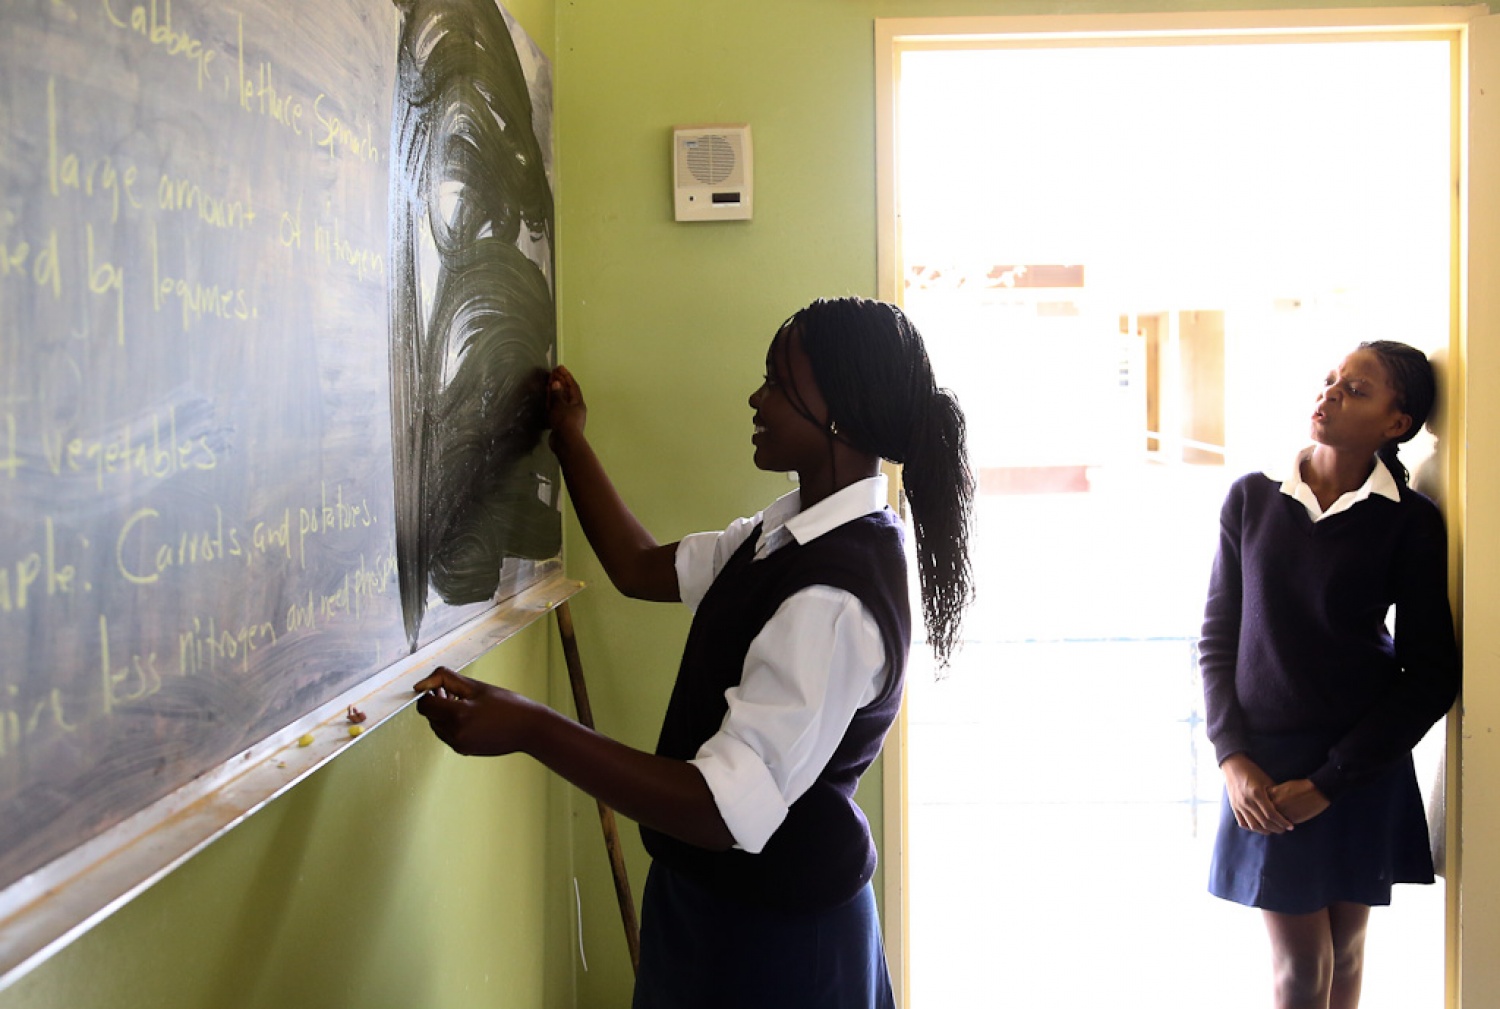 Cabbage, lettuce, Spinach.
large amount of nitrogen
ied by legumes.
t vegetables
mple: Carrots, and potatoes.
uire less nitrogen and need phosp